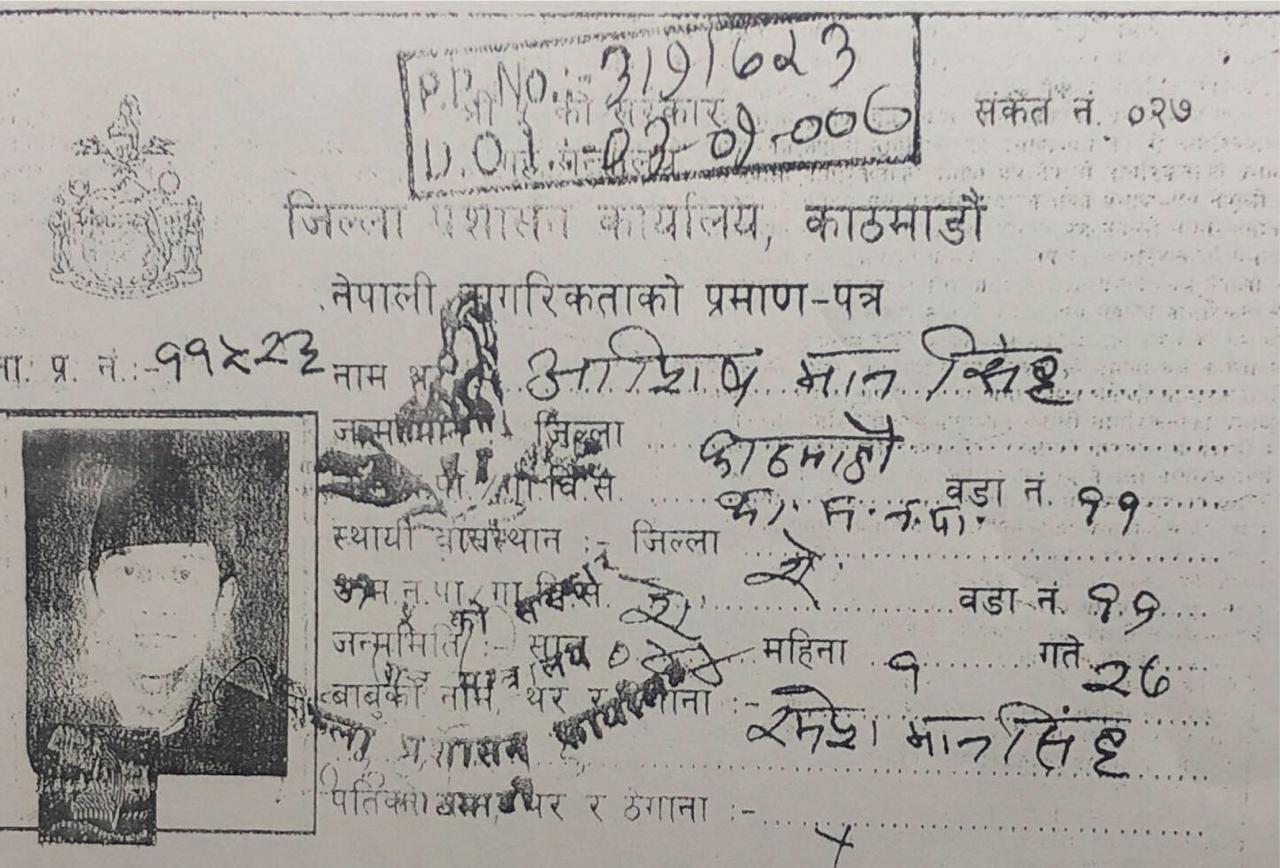 P.P. No.: 3191623
संकेत नं. ०२७
D.O.I. -03-09-006
जिल्ला प्रशासन कार्यालय, काठमाडौं
नेपाली नागरिकताको प्रमाण-पत्र
ना. प्र. नं.:-
नाम थर आशिष मान सिंह
जन्मस्थान जिल्ला काठमाडौं
गा.वि.स. का. म. न. पा. वडा नं. ११
स्थायी वासस्थान :- जिल्ला ऐ.
न.पा. गा.वि.स. ऐ. वडा नं. ११
जन्ममिति :- साल महिना १ गते २७
बाबुको नाम, थर र ठेगाना :-
रमेश मान सिंह
जिल्ला प्रशासन कार्यालय
पतिको नाम, थर र ठेगाना :- x